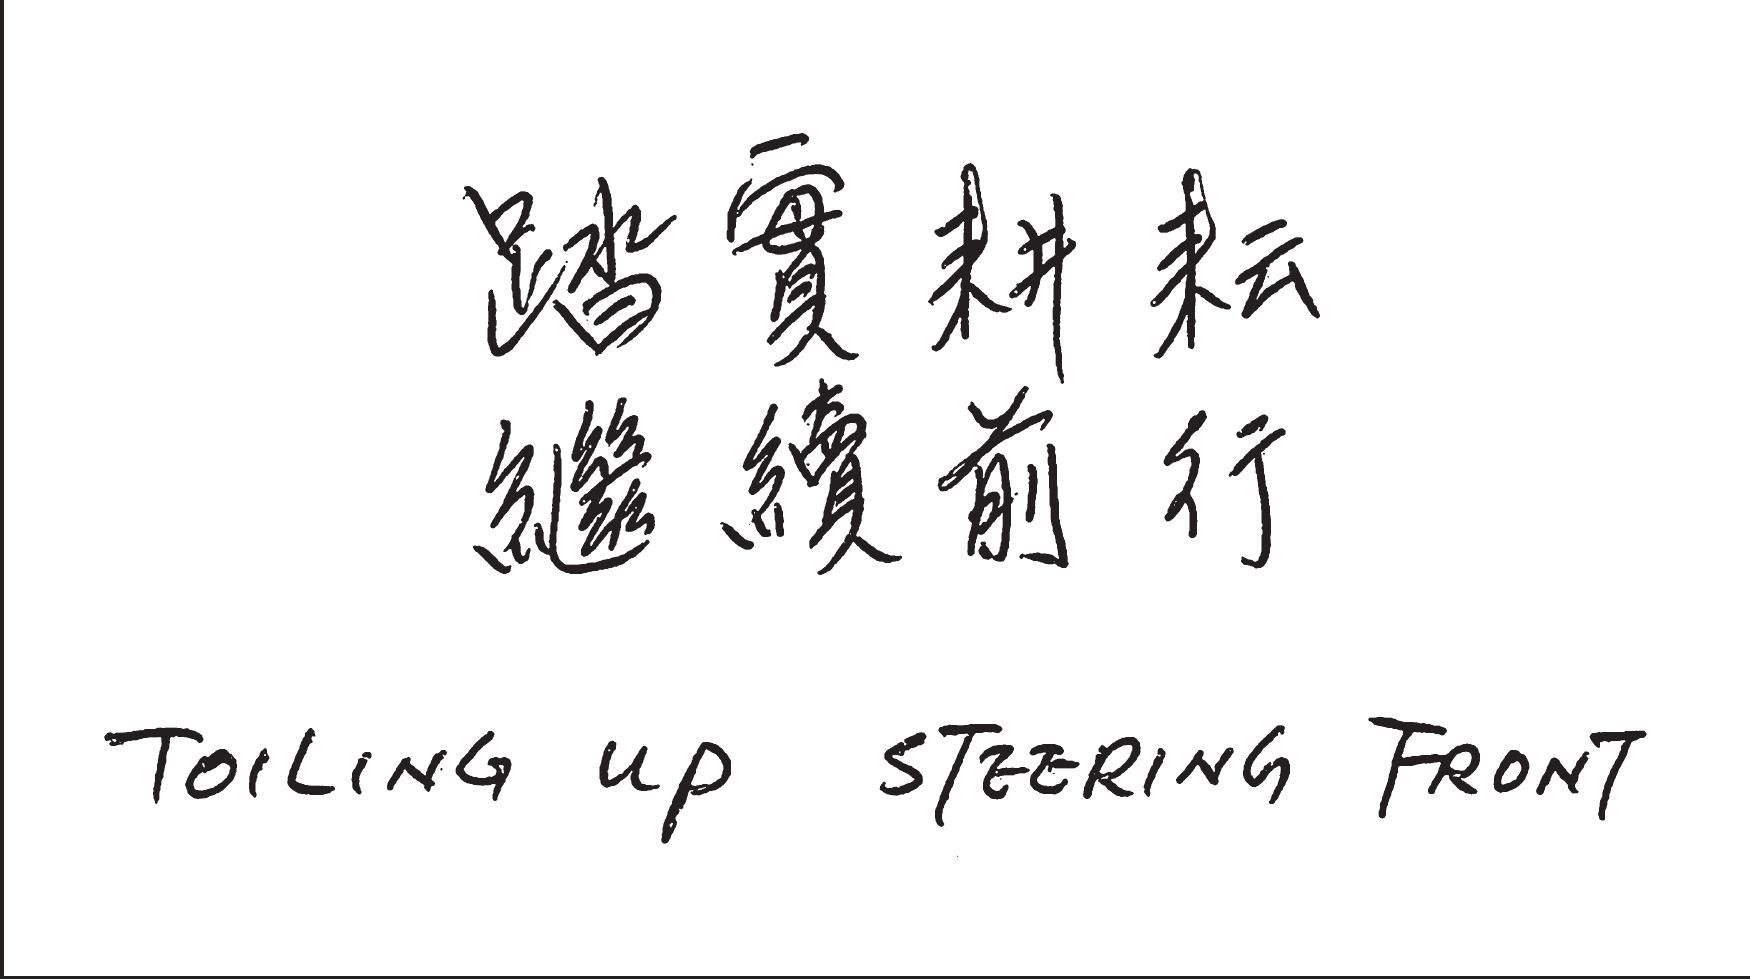 踏實耕耘
繼續前行
TOILING UP STEERING FRONT